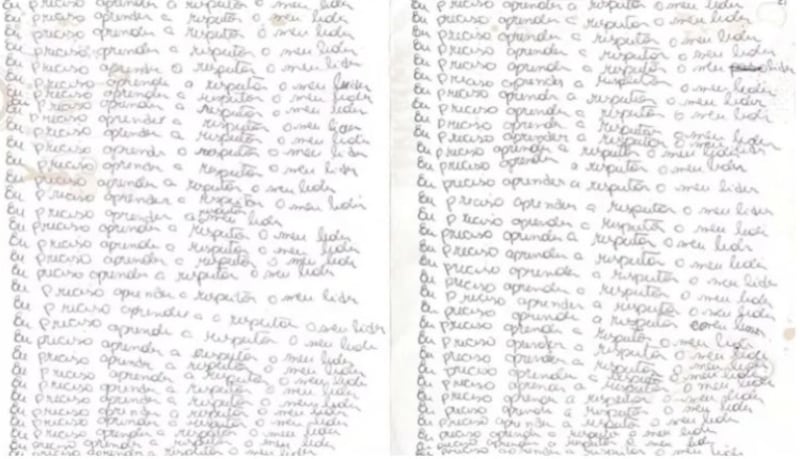 Eu preciso aprender a respeitar o meu lider
Eu preciso aprender a respeitar o meu lider
Eu preciso aprender a respeitar o meu lider
Eu preciso aprender a respeitar o meu lider
Eu preciso aprender a respeitar o meu lider
Eu preciso aprender a respeitar o meu lider
Eu preciso aprender a respeitar o meu lider
Eu preciso aprender a respeitar o meu lider
Eu preciso aprender a respeitar o meu lider
Eu preciso aprender a respeitar o meu lider
Eu preciso aprender a respeitar o meu lider
Eu preciso aprender a respeitar o meu lider
Eu preciso aprender a respeitar o meu lider
Eu preciso aprender a respeitar o meu lider
Eu preciso aprender a respeitar o meu lider
Eu preciso aprender a respeitar o meu lider
Eu preciso aprender a respeitar o meu lider
Eu preciso aprender a respeitar o meu lider
Eu preciso aprender a respeitar o meu lider
Eu preciso aprender a respeitar o meu lider
Eu preciso aprender a respeitar o meu lider
Eu preciso aprender a respeitar o meu lider
Eu preciso aprender a respeitar o meu lider
Eu preciso aprender a respeitar o meu lider
Eu preciso aprender a respeitar o meu lider
Eu preciso aprender a respeitar o meu lider
Eu preciso aprender a respeitar o meu lider
Eu preciso aprender a respeitar o meu lider
Eu preciso aprender a respeitar o meu lider
Eu preciso aprender a respeitar o meu lider
Eu preciso aprender a respeitar o meu lider
Eu preciso aprender a respeitar o meu lider
Eu preciso aprender a respeitar o meu lider
Eu preciso aprender a respeitar o meu lider
Eu preciso aprender a respeitar o meu lider
Eu preciso aprender a respeitar o meu lider
Eu preciso aprender a respeitar o meu lider
Eu preciso aprender a respeitar o meu lider
Eu preciso aprender a respeitar o meu lider
Eu preciso aprender a respeitar o meu lider
Eu preciso aprender a respeitar o meu lider
Eu preciso aprender a respeitar o meu lider
Eu preciso aprender a respeitar o meu lider
Eu preciso aprender a respeitar o meu lider
Eu preciso aprender a respeitar o meu lider
Eu preciso aprender a respeitar o meu lider
Eu preciso aprender a respeitar o meu lider
Eu preciso aprender a respeitar o meu lider
Eu preciso aprender a respeitar o meu lider
Eu preciso aprender a respeitar o meu lider
Eu preciso aprender a respeitar o meu lider
Eu preciso aprender a respeitar
Eu preciso aprender a respeitar o meu lider
Eu preciso aprender a respeitar o meu lider
Eu preciso aprender a respeitar o meu lider
Eu preciso aprender a respeitar o meu lider
Eu preciso aprender a respeitar o meu lider
Eu preciso aprender a respeitar o meu lider
Eu preciso aprender a respeitar o meu lider
Eu preciso aprender a respeitar o meu lider
Eu preciso aprender a respeitar o meu lider